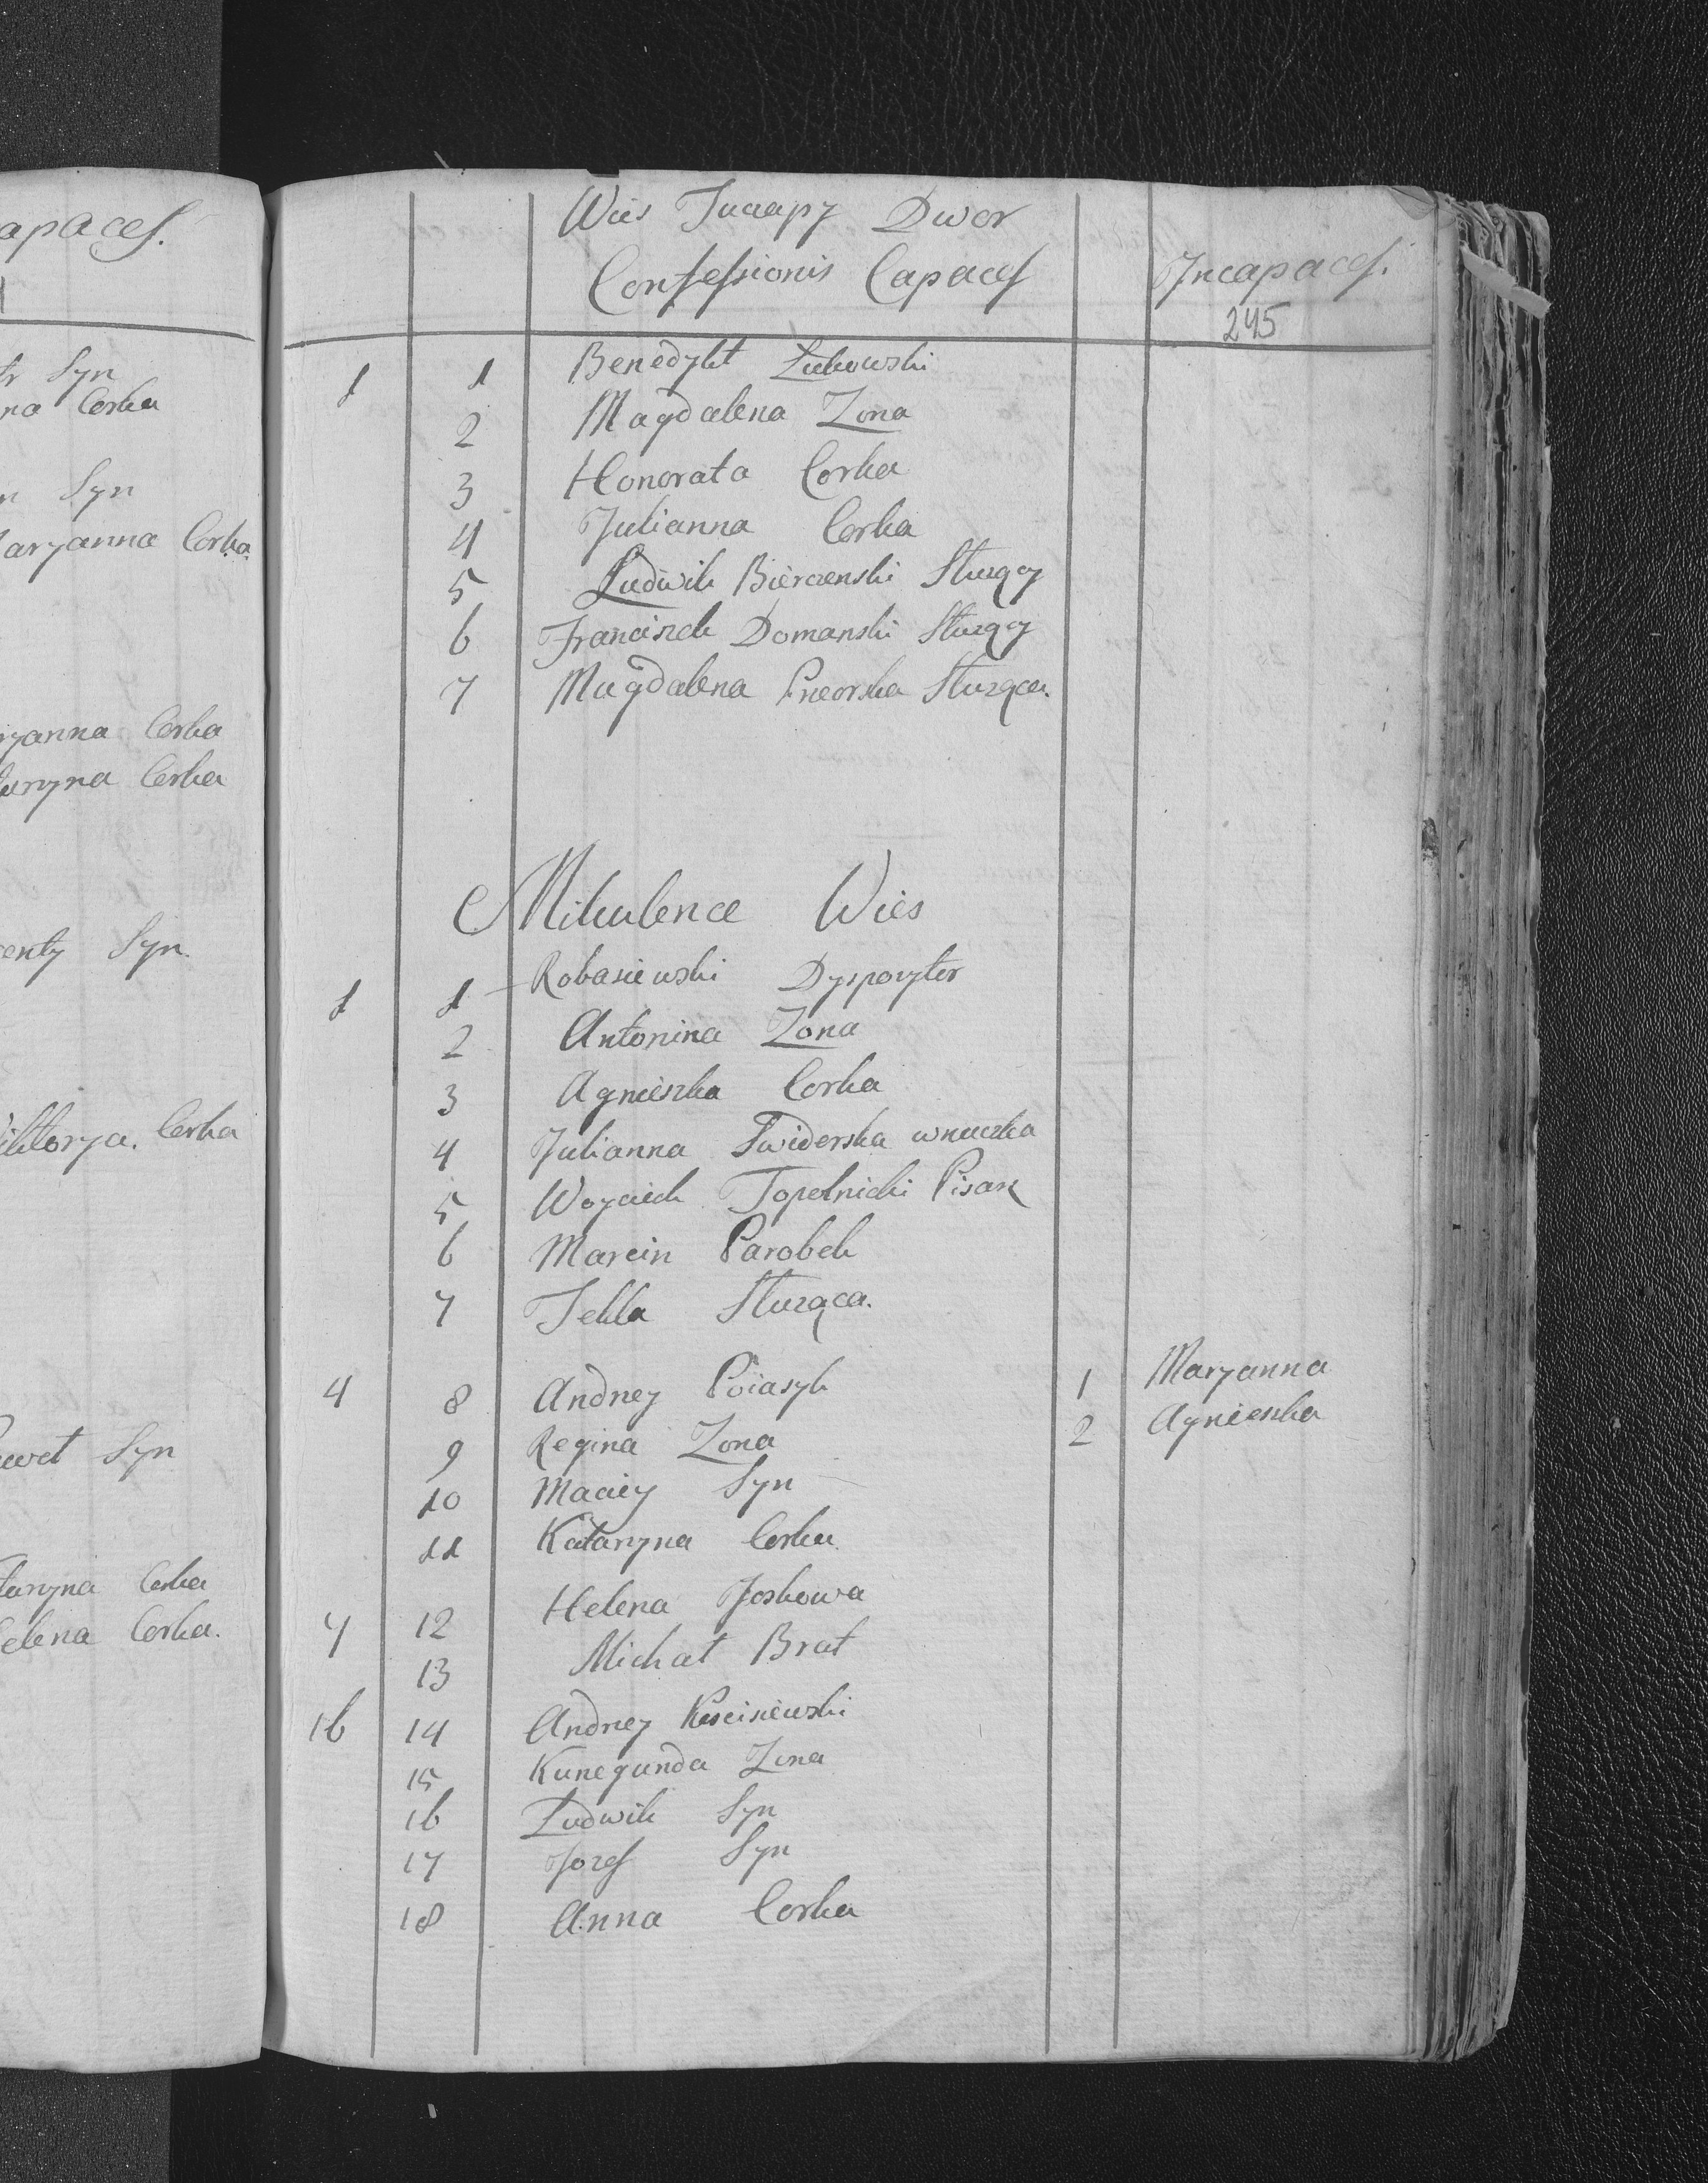 apaces.
Syn
na Corka
n Syn
Maryanna Corka
ryanna Corka
Corka
centy Syn
Wiktorya Corka
Paweł Syn
Corka
Helena Corka.
Wies Dwor
Confessionis Capaces
Incapaces.
245
1 1 Benedykt Żukowski
2 Magdalena Zona
3 Honorata Corka
4 Julianna Corka
5 Ludwik Bierczenski Służący
6 Franciszek Domanski Służący
7 Magdalena Służąca.
Mikulence Wies
1 1 Robasiewski Dyspozytor
2 Antonina Zona
3 Agnieszka Corka
4 Julianna Swiderska wnuczka
5 Woyciech Topelnicki Pisarz
6 Marcin Parobek
7 Tekla Służąca.
4 8 Andrzey Poiasyk 1 Maryanna
9 Regina Zona 2 Agnieszka
10 Maciey Syn
11 Katarzyna Corka
7 12 Helena Joskowa
13 Michał Brat
16 14 Andrzey
15 Kunegunda Zona
16 Ludwik Syn
17 Jozef Syn
18 Anna Corka